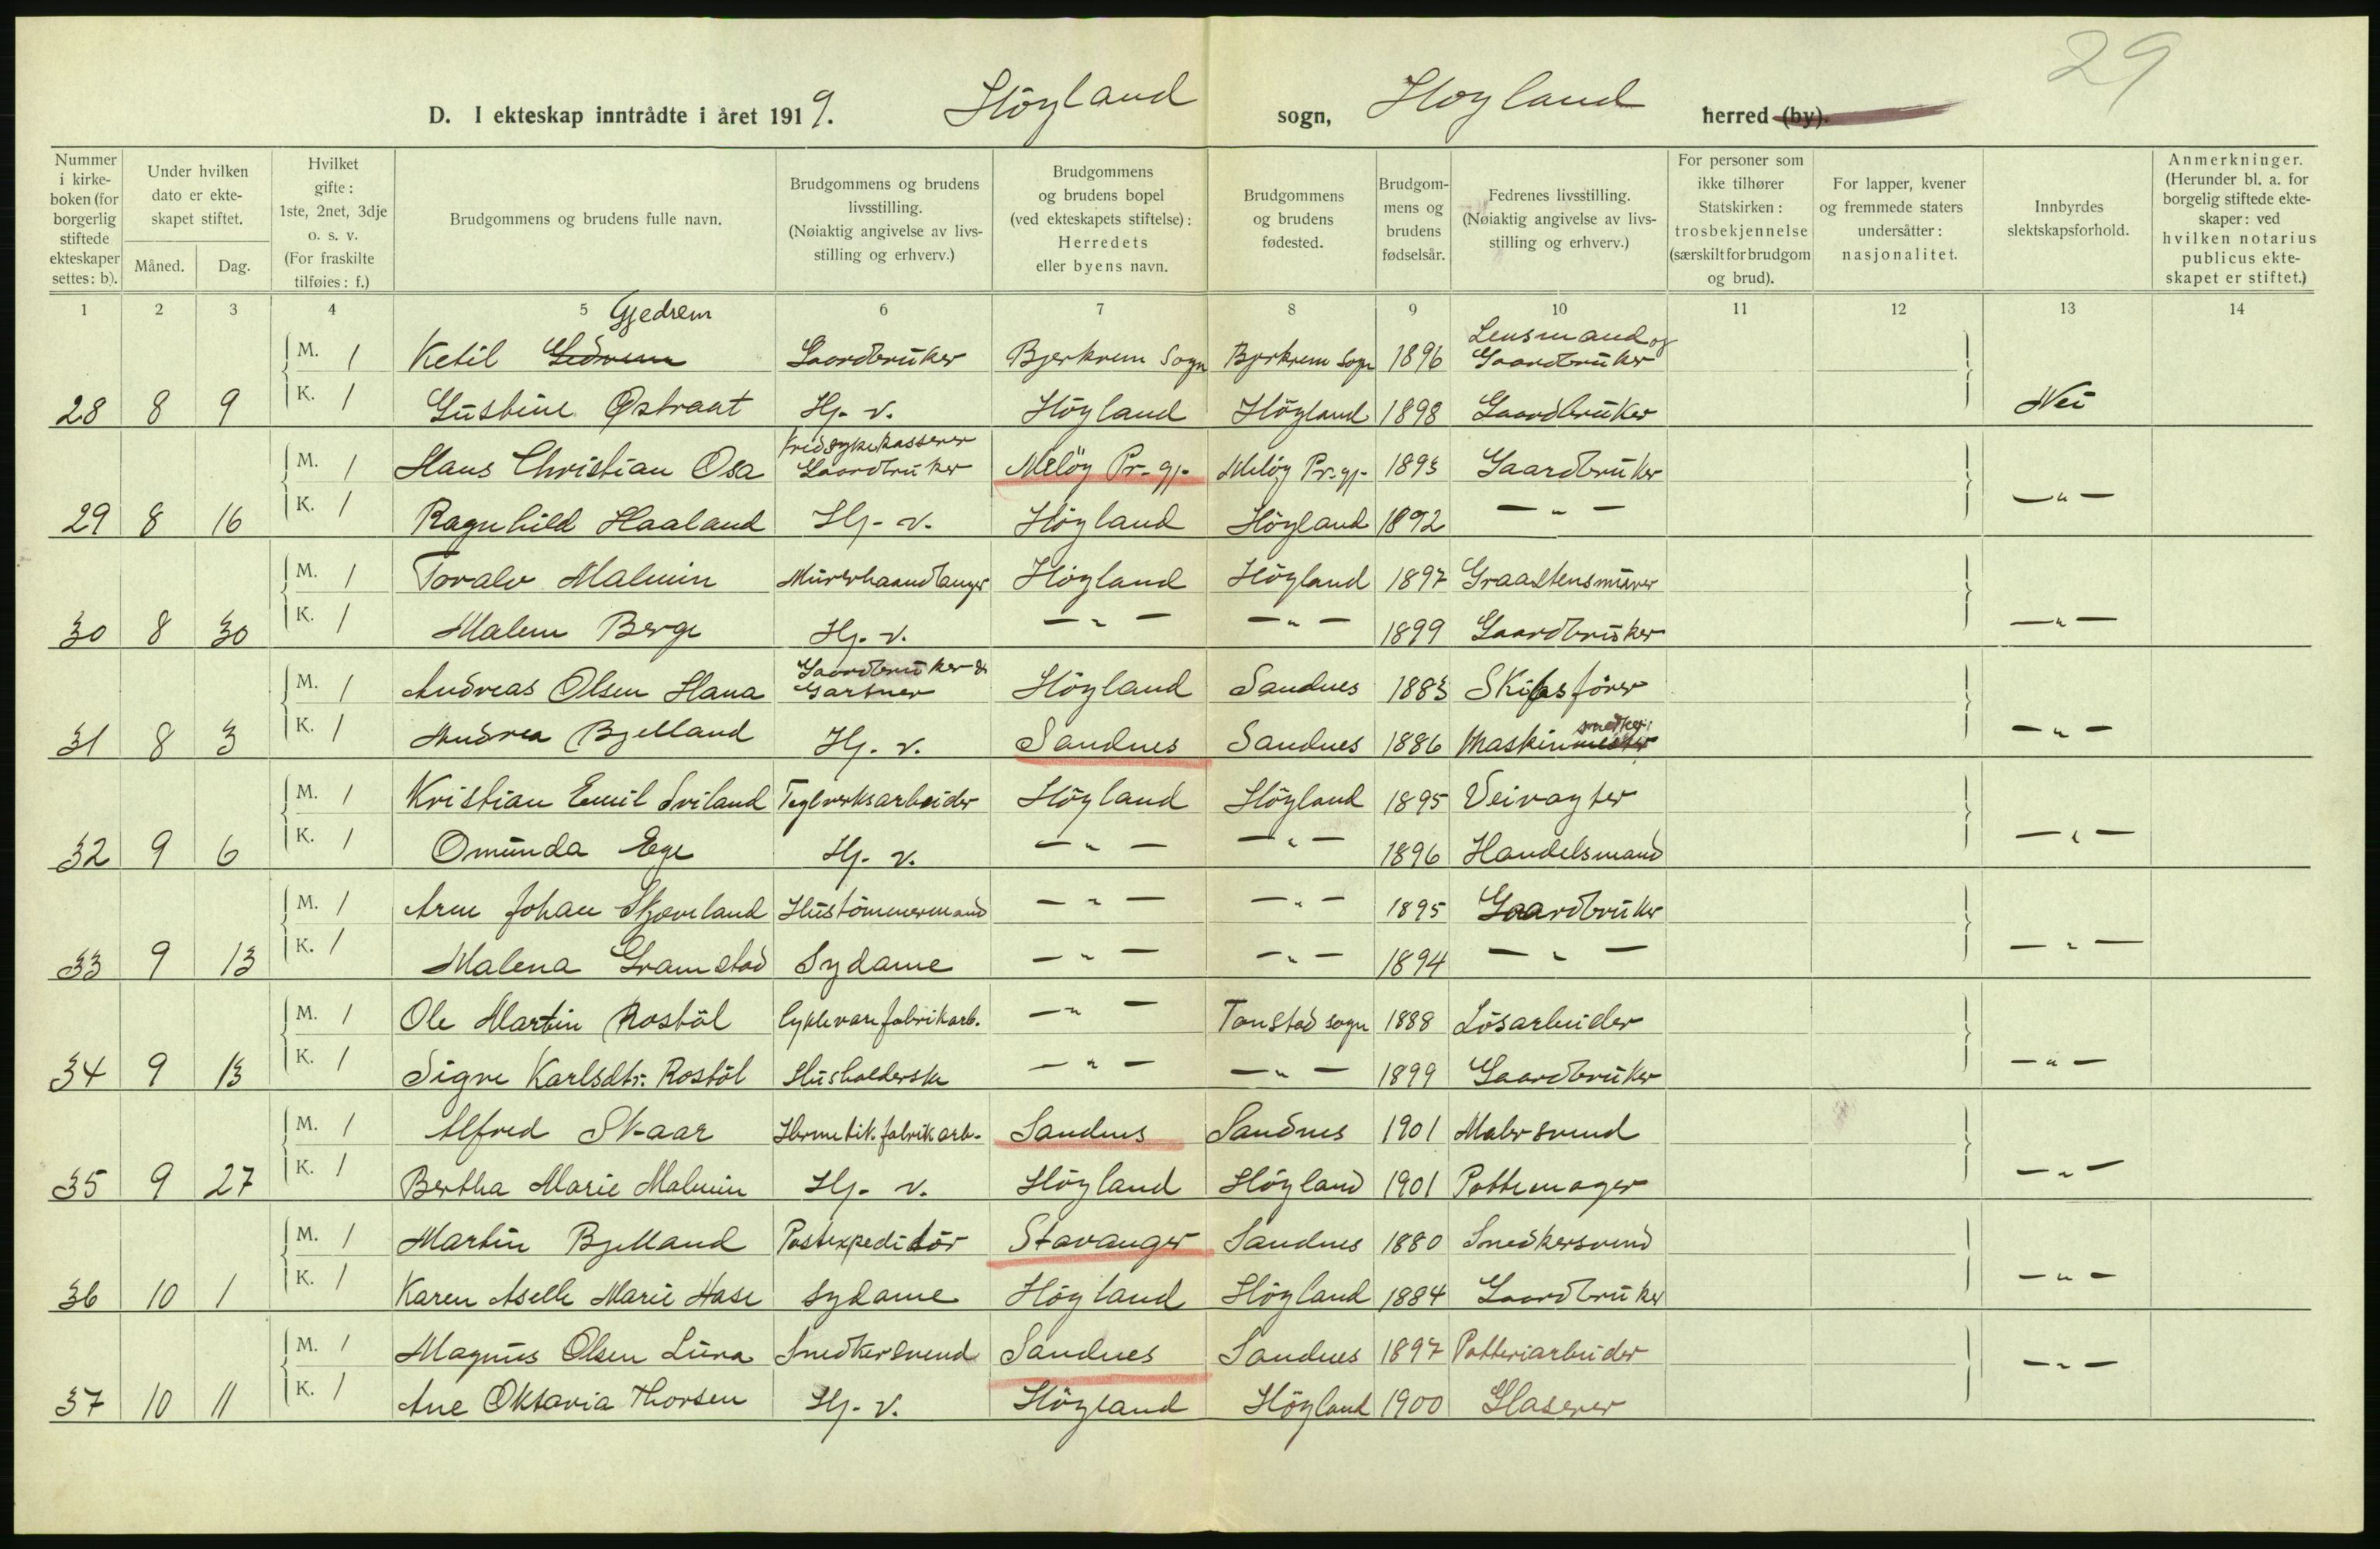 29
D. I ekteskap inntrådte i året 1919. Höyland sogn, Höyland herred (by).
Nummer i kirkeboken (for borgerlig stiftede ekteskaper settes: b).
Under hvilken dato er ekteskapet stiftet.
Måned. Dag.
Hvilket gifte: 1ste, 2net, 3dje o. s. v. (For fraskilte tilføies: f.)
Brudgommens og brudens fulle navn.
Brudgommens og brudens livsstilling. (Nøiaktig angivelse av livsstilling og erhverv.)
Brudgommens og brudens bopel (ved ekteskapets stiftelse): Herredets eller byens navn.
Brudgommens og brudens fødested.
Brudgommens og brudens fødselsår.
Fedrenes livsstilling. (Nøiaktig angivelse av livsstilling og erhverv.)
For personer som ikke tilhører Statskirken: trosbekjennelse (særskilt for brudgom og brud).
For lapper, kvener og fremmede staters undersåtter: nasjonalitet.
Innbyrdes slektskapsforhold.
Anmerkninger. (Herunder bl. a. for borgerlig stiftede ekteskaper: ved hvilken notarius publicus ekteskapet er stiftet.)
1 2 3 4 5 6 7 8 9 10 11 12 13 14
Gjedrem
M. 1 Ketil Gedrem Gaardbruker Bjerkrem Sogn Bjerkrem Sogn 1896 Lensmand og Gaardbruker
28 8 9 K. 1 Gustine Østraat Hj. v. Höyland Höyland 1898 Gaardbruker Nei
M. 1 Hans Christian Osa Kredsykekasserer Gaardbruker Melöy Pr. gj. Melöy Pr. gj. 1893 Gaardbruker
29 8 16 K. 1 Ragnhild Haaland Hj. v. Höyland Höyland 1892 — „ — — „ —
M. 1 Toralv Malmin Murerhaandlanger Höyland Höyland 1897 Graastensmurer
30 8 30 K. 1 Malene Berge Hj. v. — „ — — „ — 1899 Gaardbruker — „ —
M. 1 Andreas Olsen Hana Gaardbruker & Gartner Höyland Sandnes 1883 Skibsförer
31 8 3 K. 1 Andrea Bjelland Hj. v. Sandnes Sandnes 1886 Maskinmester snedker — „ —
M. 1 Kristian Emil Sviland Teglverksarbeider Höyland Höyland 1895 Veivogter
32 9 6 K. 1 Omunda Ege Hj. v. — „ — — „ — 1896 Handelsmand — „ —
M. 1 Arne Johan Skjæveland Hustömmermand — „ — — „ — 1895 Gaardbruker
33 9 13 K. 1 Malena Gramstad Sydame — „ — — „ — 1894 — „ — — „ —
M. 1 Ole Martin Rostöl Cyklevarefabrikarb. — „ — Tonstad sogn 1888 Lösarbeider
34 9 13 K. 1 Signe Karlsdtr. Rostöl Husholderske — „ — — „ — 1899 Gaardbruker — „ —
M. 1 Alfred Skaar Hermetik.fabrikarb. Sandnes Sandnes 1901 Malersvend
35 9 27 K. 1 Bertha Marie Malmin Hj. v. Höyland Höyland 1901 Pottemager — „ —
M. 1 Martin Bjelland Postexpeditör Stavanger Sandnes 1880 Snedkersvend
36 10 1 K. 1 Karen Aselle Marie Hase Sydame Höyland Höyland 1884 Gaardbruker — „ —
M. 1 Magnus Olsen Lura Snedkersvend Sandnes Sandnes 1897 Potteriarbeider
37 10 11 K. 1 Ane Oktavia Thorsen Hj. v. Höyland Höyland 1900 Glaserer — „ —